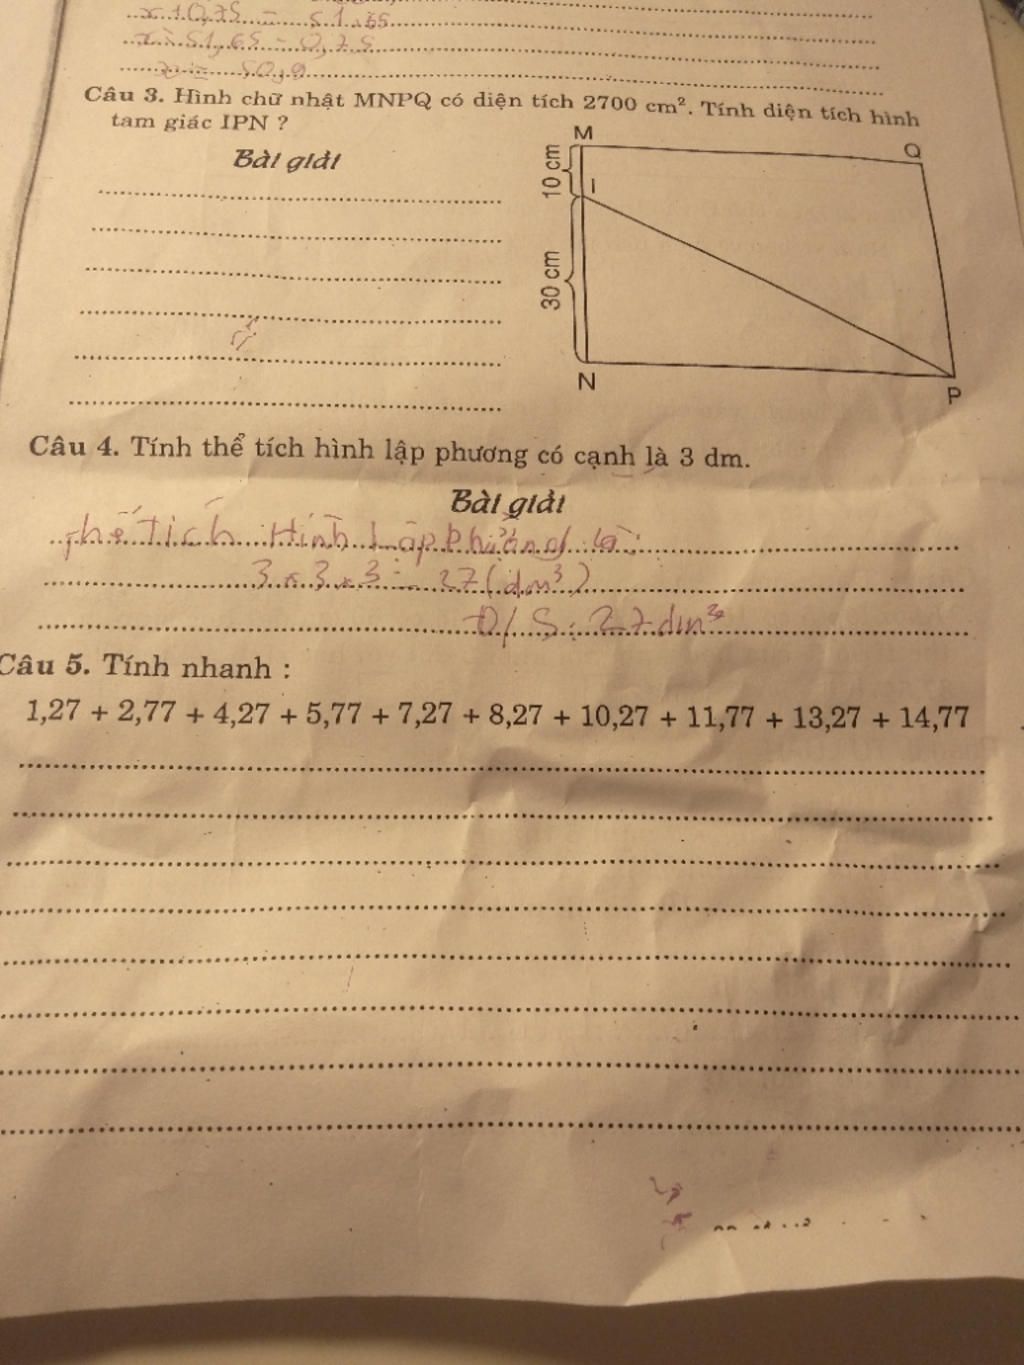 x + 0,75 = 51,65
x = 51,65 - 0,75
x = 50,9
Câu 3. Hình chữ nhật MNPQ có diện tích 2700 cm². Tính diện tích hình
tam giác IPN ?
Bài giải
M
Q
10 cm
I
30 cm
N
P
Câu 4. Tính thể tích hình lập phương có cạnh là 3 dm.
Bài giải
Thể Tích Hình Lập Phương là:
3 x 3 x 3 = 27 (dm³)
Đ/S: 27 dm³
Câu 5. Tính nhanh :
1,27 + 2,77 + 4,27 + 5,77 + 7,27 + 8,27 + 10,27 + 11,77 + 13,27 + 14,77